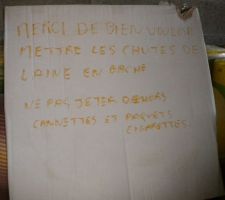 MERCI DE BIEN VOULOIR
METTRE LES CHUTES DE
LAINE EN BACHE
NE PAS JETER DEHORS
CANNETTES ET PAQUETS
CIGARETTES.